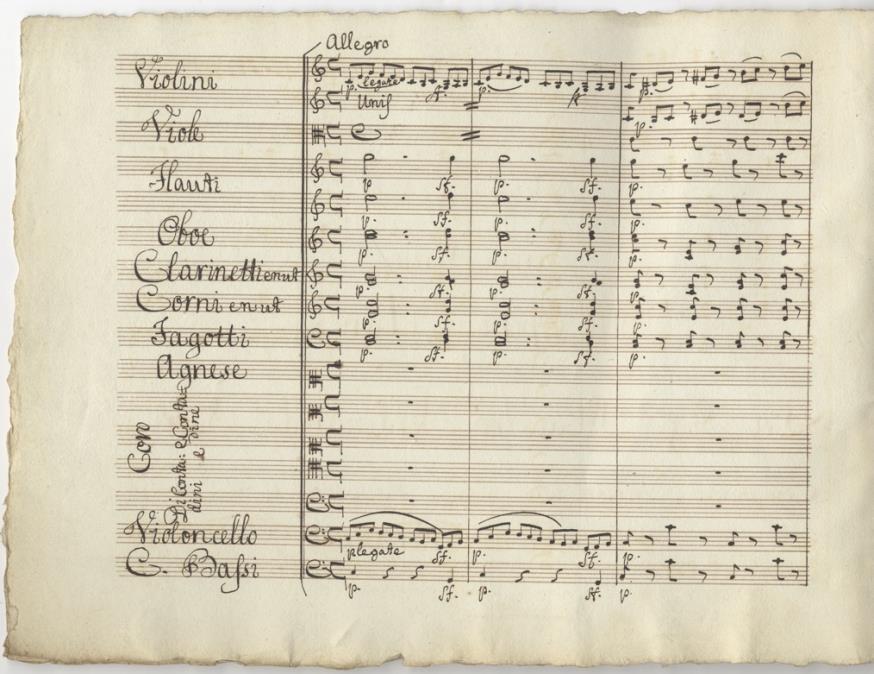 Allegro
Violini
p. legate sf. p. sf. p.
Unis
p.
Viole
Flauti
p sf. p. sf. p.
p. sf. p. sf.
Oboe
p. sf. p. sf. p.
Clarinetti en ut
p. sf. p. sf. p.
Corni en ut
p. sf. p. sf. p.
Fagotti
p. sf. p. sf. p.
Agnese
Coro
Di Conta: e Conta=
dini e dine
Violoncello
p legate sf. p. sf. p.
C. Bassi
p. sf. p. sf. p.